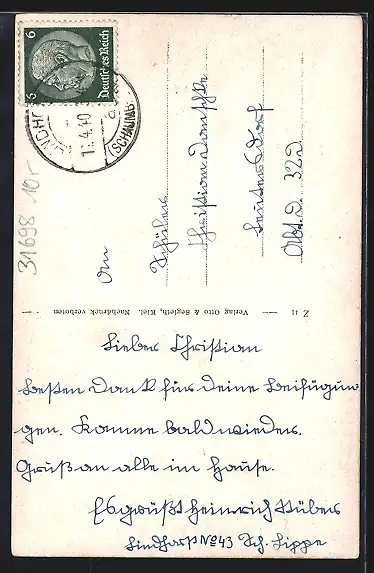 Deutsches Reich
6
6
LINDHO
1 .4.40
(SCHAUMB
31698 10.-
An
Schüler
Christian
Abt. D. 32a
Z 11 — Verlag Otto & Segleth, Kiel. Nachdruck verboten
Lieber Christian
besten Dank für deine Beifügun
gen. Komme bald wieder.
Gruß an alle im Hause.
Es grüßt Heinrich Stüber
Lindhorst No 43 Sch. Lippe